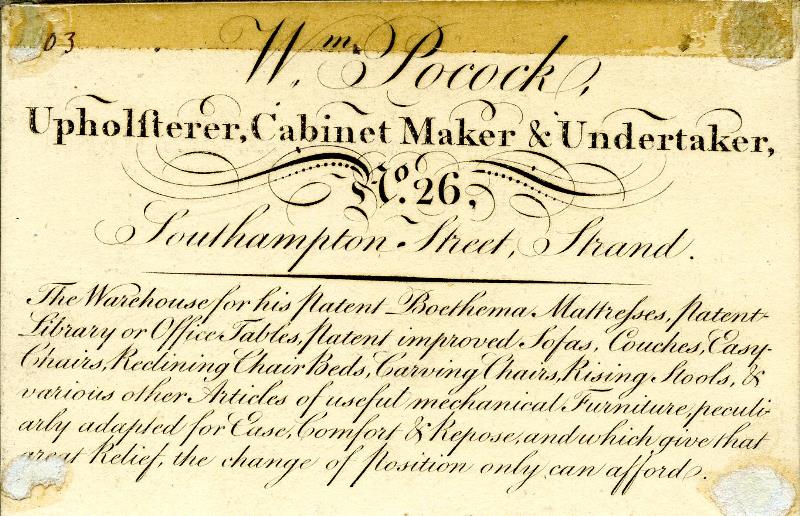 03
Wm. Pocock,
Upholſterer, Cabinet Maker & Undertaker,
No. 26,
Southampton Street, Strand.
The Warehouse for his patent Boethema Mattreſses, patent
Library or Office Tables, patent improved Sofas, Couches, Easy-
Chairs, Reclining Chair Beds, Carving Chairs, Rising Stools, &
various other Articles of useful mechanical Furniture, peculi-
arly adapted for Ease, Comfort & Repose, and which give that
great Relief, the change of position only can afford.